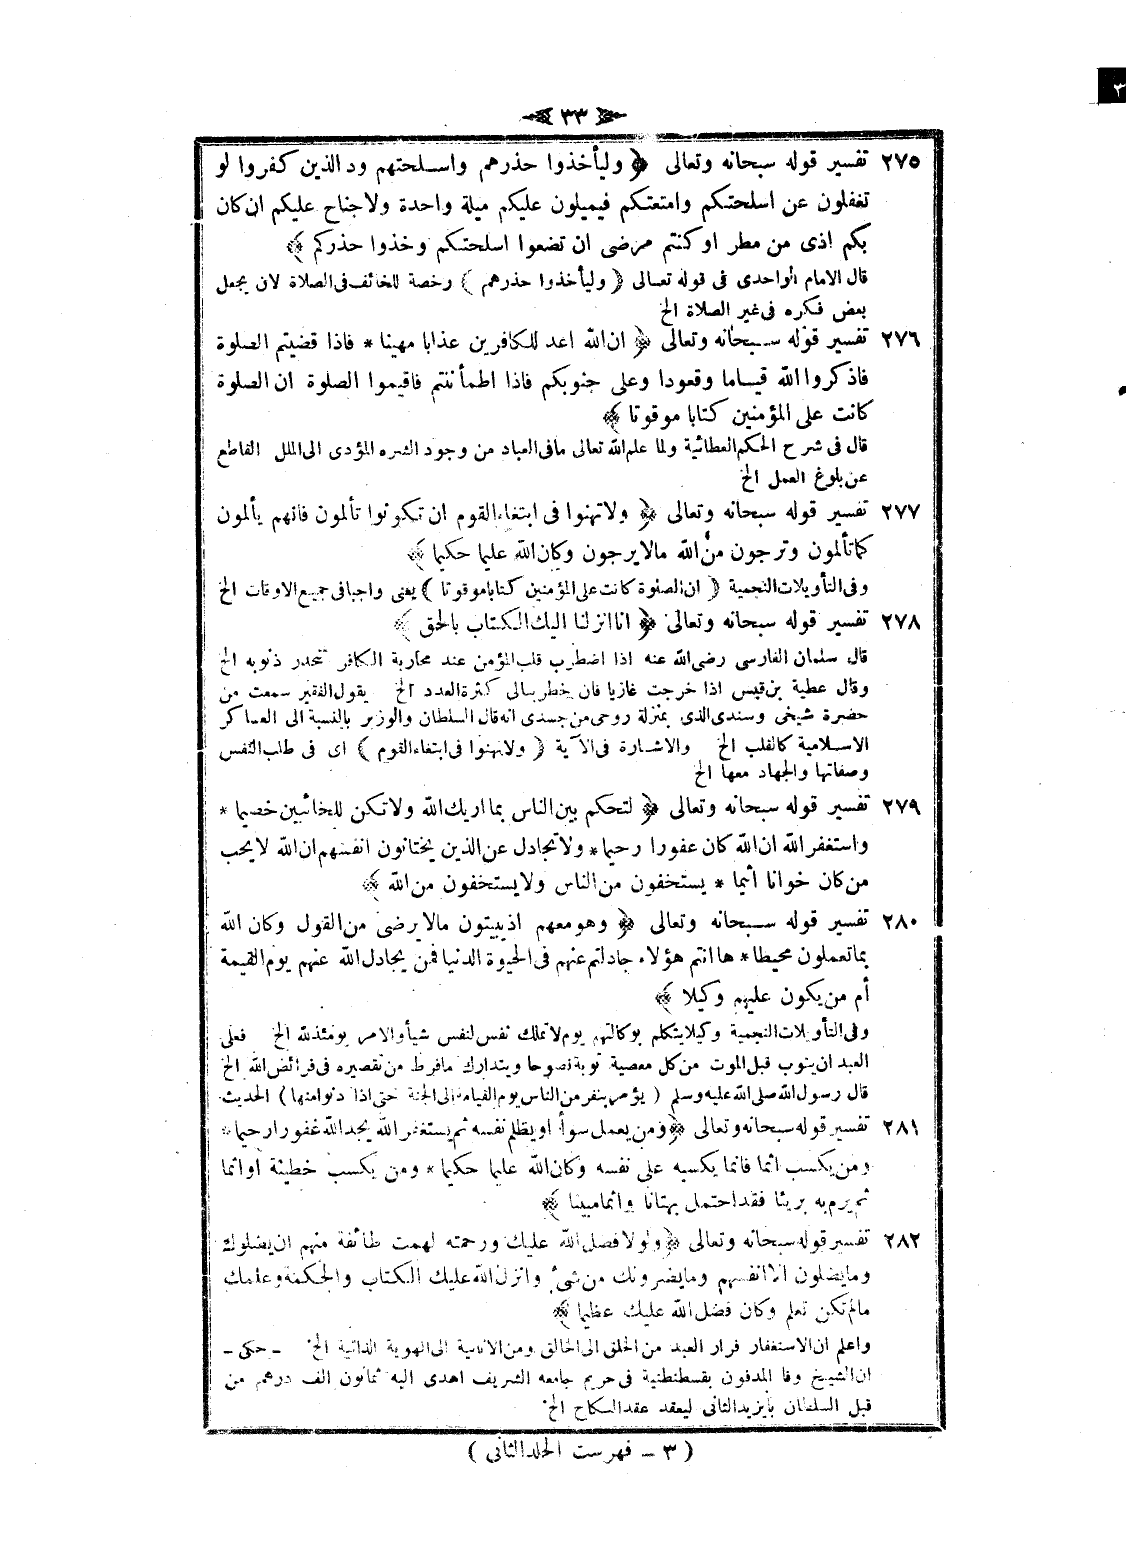 ٣٣
٣
٢٧٥ تفسير قوله سبحانه وتعالى ﴿ وليأخذوا حذرهم واسلحتهم ود الذين كفروا لو
تغفلون عن اسلحتكم وامتعتكم فيميلون عليكم ميلة واحدة ولاجناح عليكم ان كان
بكم اذى من مطر او كنتم مرضى ان تضعوا اسلحتكم وخذوا حذركم ﴾
قال الامام الواحدى فى قوله تعالى ( وليأخذوا حذرهم ) رخصة للخائف فى الصلاة لان يجعل
بعض فكره فى غير الصلاة الخ
٢٧٦ تفسير قوله سبحانه وتعالى ﴿ ان الله اعد للكافرين عذابا مهينا * فاذا قضيتم الصلوة
فاذكروا الله قياما وقعودا وعلى جنوبكم فاذا اطمأننتم فاقيموا الصلوة ان الصلوة
كانت على المؤمنين كتابا موقوتا ﴾
قال فى شرح الحكم العطائية ولما علم الله تعالى مافى العباد من وجود الشره المؤدى الى الملل القاطع
عن بلوغ العمل الخ
٢٧٧ تفسير قوله سبحانه وتعالى ﴿ ولاتهنوا فى ابتغاء القوم ان تكونوا تألمون فانهم يألمون
كما تألمون وترجون من الله مالا يرجون وكان الله عليما حكيما ﴾
وفى التأويلات النجمية ( ان الصلوة كانت على المؤمنين كتابا موقوتا ) يعنى واجبا فى جميع الاوقات الخ
٢٧٨ تفسير قوله سبحانه وتعالى ﴿ انا انزلنا اليك الكتاب بالحق ﴾
قال سلمان الفارسى رضى الله عنه اذا اضطرب قلب المؤمن عند محاربة الكافر تتحدر ذنوبه الخ
وقال عطية بن قيس اذا خرجت غازيا فان خطر ببالى كثرة العدد الخ يقول الفقير سمعت من
حضرة شيخى وسندى الذى بمنزلة روحى من جسدى انه قال السلطان والوزير بالنسبة الى العساكر
الاسلامية كالقلب الخ والاشارة فى الآية ( ولاتهنوا فى ابتغاء القوم ) اى فى طلب النفس
وصفاتها والجهاد معها الخ
٢٧٩ تفسير قوله سبحانه وتعالى ﴿ لتحكم بين الناس بما اريك الله ولا تكن للخائنين خصيما *
واستغفر الله ان الله كان غفورا رحيما * ولاتجادل عن الذين يختانون انفسهم ان الله لايحب
من كان خوانا أثيما * يستخفون من الناس ولا يستخفون من الله ﴾
٢٨٠ تفسير قوله سبحانه وتعالى ﴿ وهو معهم اذ يبيتون مالا يرضى من القول وكان الله
بما تعملون محيطا * ها انتم هؤلاء جادلتم عنهم فى الحيوة الدنيا فمن يجادل الله عنهم يوم القيمة
أم من يكون عليهم وكيلا ﴾
وفى التأويلات النجمية وكيلا يتكلم بوكالتهم يوم لاتملك نفس لنفس شيأ والامر يومئذ لله الخ فعلى
العبد ان يتوب قبل الموت من كل معصية توبة نصوحا ويتدارك مافرط من تقصيره فى فرائض الله الخ
قال رسول الله صلى الله عليه وسلم ( يؤمر بنفر من الناس يوم القيامة الى الجنة حتى اذا دنوا منها ) الحديث
٢٨١ تفسير قوله سبحانه وتعالى ﴿ ومن يعمل سوأ او يظلم نفسه ثم يستغفر الله يجد الله غفورا رحيما *
ومن يكسب اثما فانما يكسبه على نفسه وكان الله عليما حكيما * ومن يكسب خطيئة أو اثما
ثم يرم به بريئا فقد احتمل بهتانا واثما مبينا ﴾
٢٨٢ تفسير قوله سبحانه وتعالى ﴿ ولولا فضل الله عليك ورحمته لهمت طائفة منهم ان يضلوك
وما يضلون الا انفسهم وما يضرونك من شئ وانزل الله عليك الكتاب والحكمة وعلمك
مالم تكن تعلم وكان فضل الله عليك عظيما ﴾
واعلم ان الاستغفار فرار العبد من الخلق الى الخالق ومن الانانية الى الهوية الذاتية الخ - حكى -
ان الشيخ وفا المدفون بقسطنطنية فى حريم جامعه الشريف اهدى اليه ثمانون الف درهم من
قبل السلطان بايزيد الثانى ليعقد عقد النكاح الخ
( ٣ - فهرست الجلد الثانى )